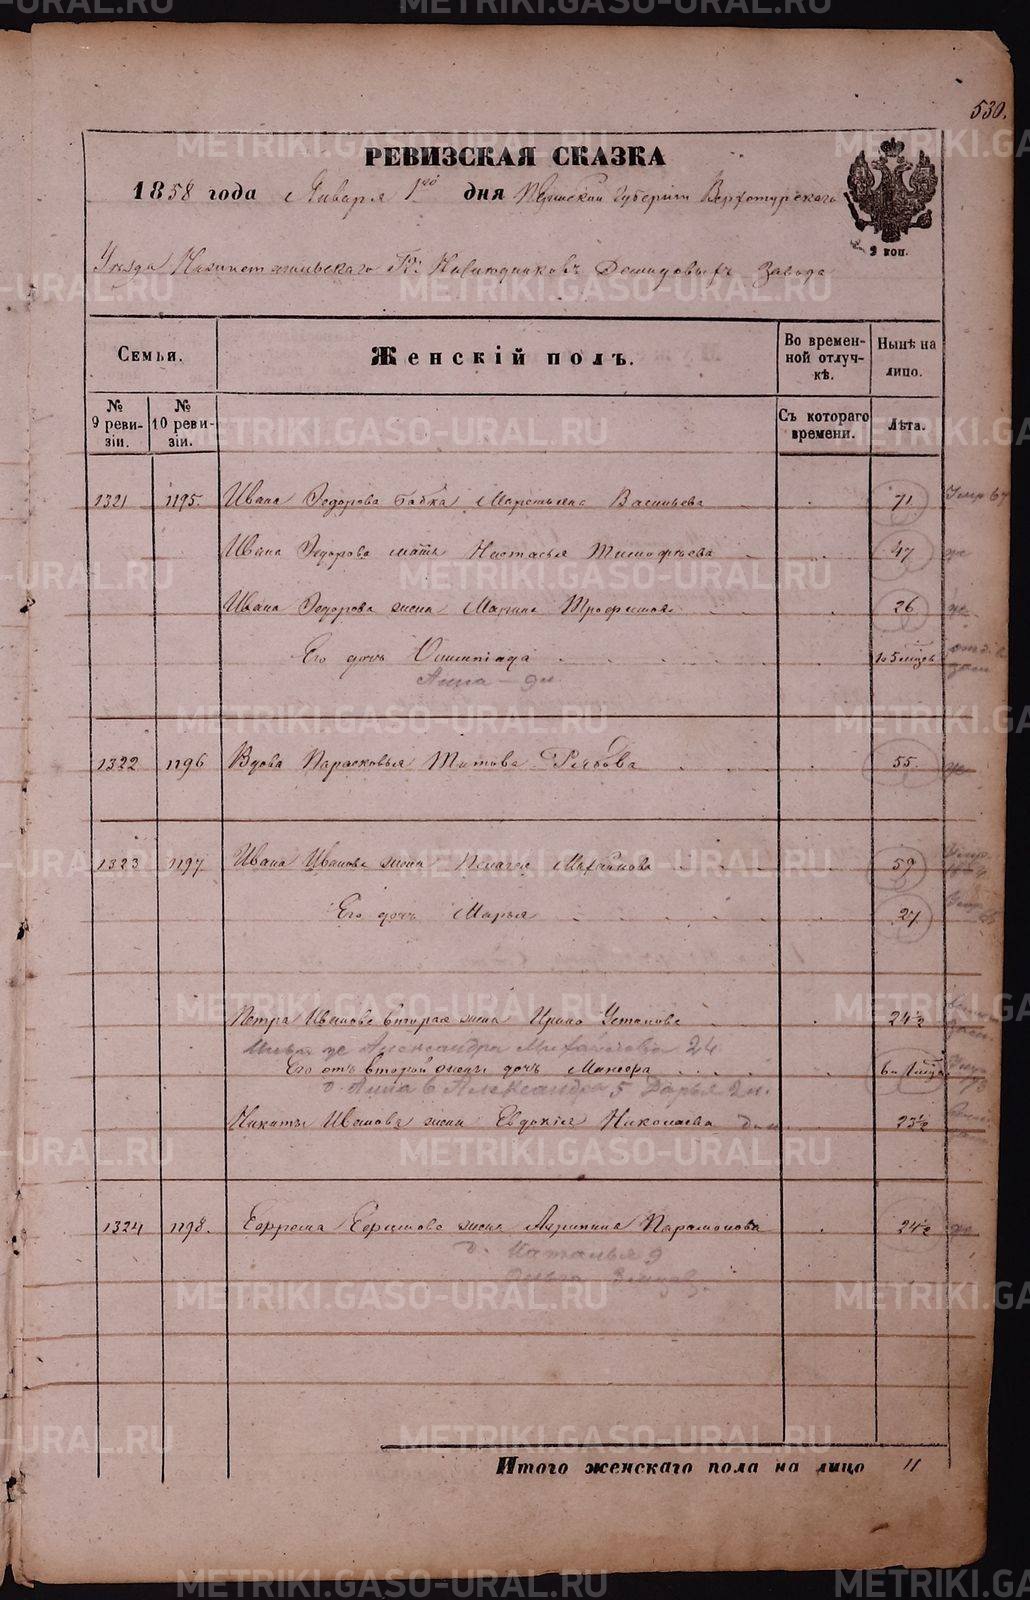 530.
РЕВИЗСКАЯ СКАЗКА
1858 года Января 1го дня Пермской Губернiи Верхотурскаго
2 коп.
Уѣзда Нижнетагильскаго Гг. Наслѣдниковъ Демидовыхъ Завода
Семьи.
Женскiй полъ.
Во времен-
ной отлуч-
кѣ.
Нынѣ на
лицо.
№
9 реви-
зiи.
№
10 реви-
зiи.
Съ котораго
времени.
Лѣта.
1321 1195. Ивана Федорова бабка Марстьяна Васильева 71
Ивана Федорова мать Настасья Тимофѣева 47
Ивана Федорова жена Марина Трофимова 26
Его дочь Олимпiада 5 мцов
Анна
1322 1196 Вдова Парасковья Титова Рябова 55.
1323 1197 Ивана Иванова жена Пелагея Михайлова 59
Его дочь Марья 27
Петра Иванова вторая жена Ирина Устинова 24½
Александра Михайлова 24
Его отъ второй жены дочь
д. Анна 6 Александра 5 Дарья 2 н.
Никиты Иванова жена Евдокiя Николаева 23½
1324 1198. Ефрема Ефимова жена Агрипина Парамонова 24½
д. Наталья 9
Итого женскаго пола на лицо 11
METRIKI.GASO-URAL.RU